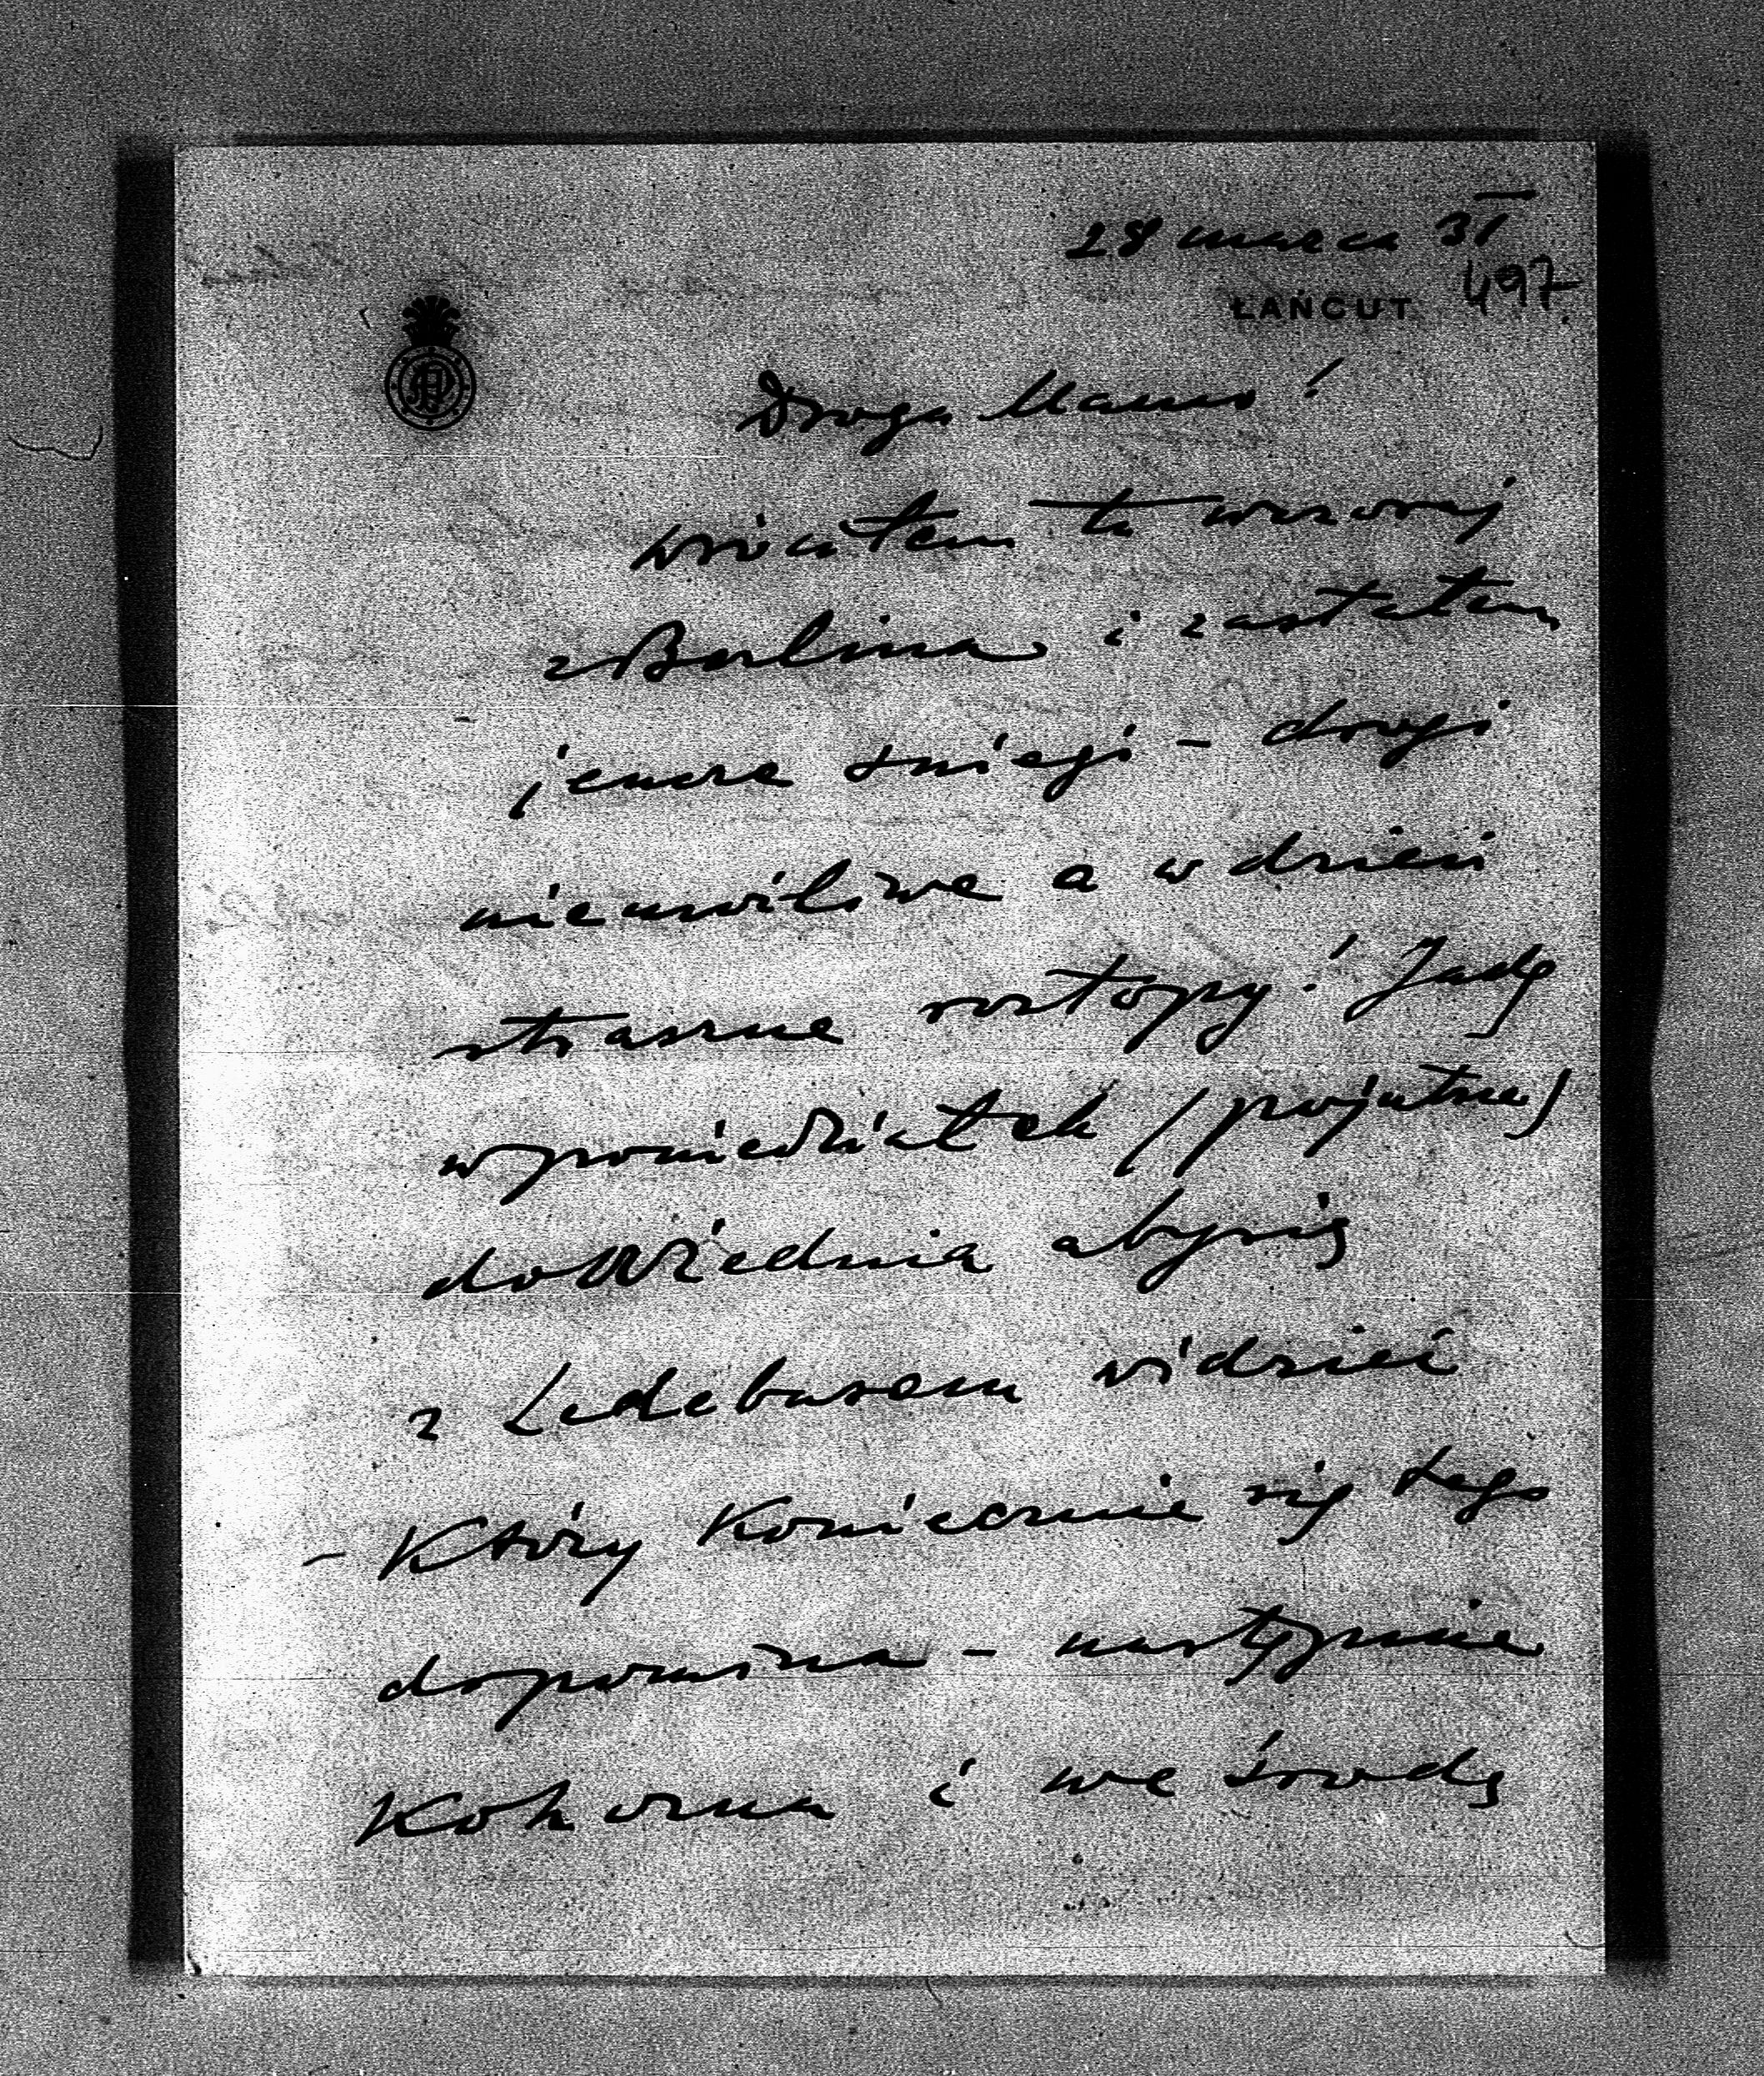 28 marca 31
497.
ŁAŃCUT
Droga Mamo!
wróciłem tu wczoraj
z Berlina i zastałem
jeszcze śniegi - drogi
niemożliwe a w dzień
straszne roztopy! Jadę
w poniedziałek (pojutrze)
do Wiednia aby się
z Ledeburem widzieć
- który koniecznie się tego
dopomina - następnie
i we środę